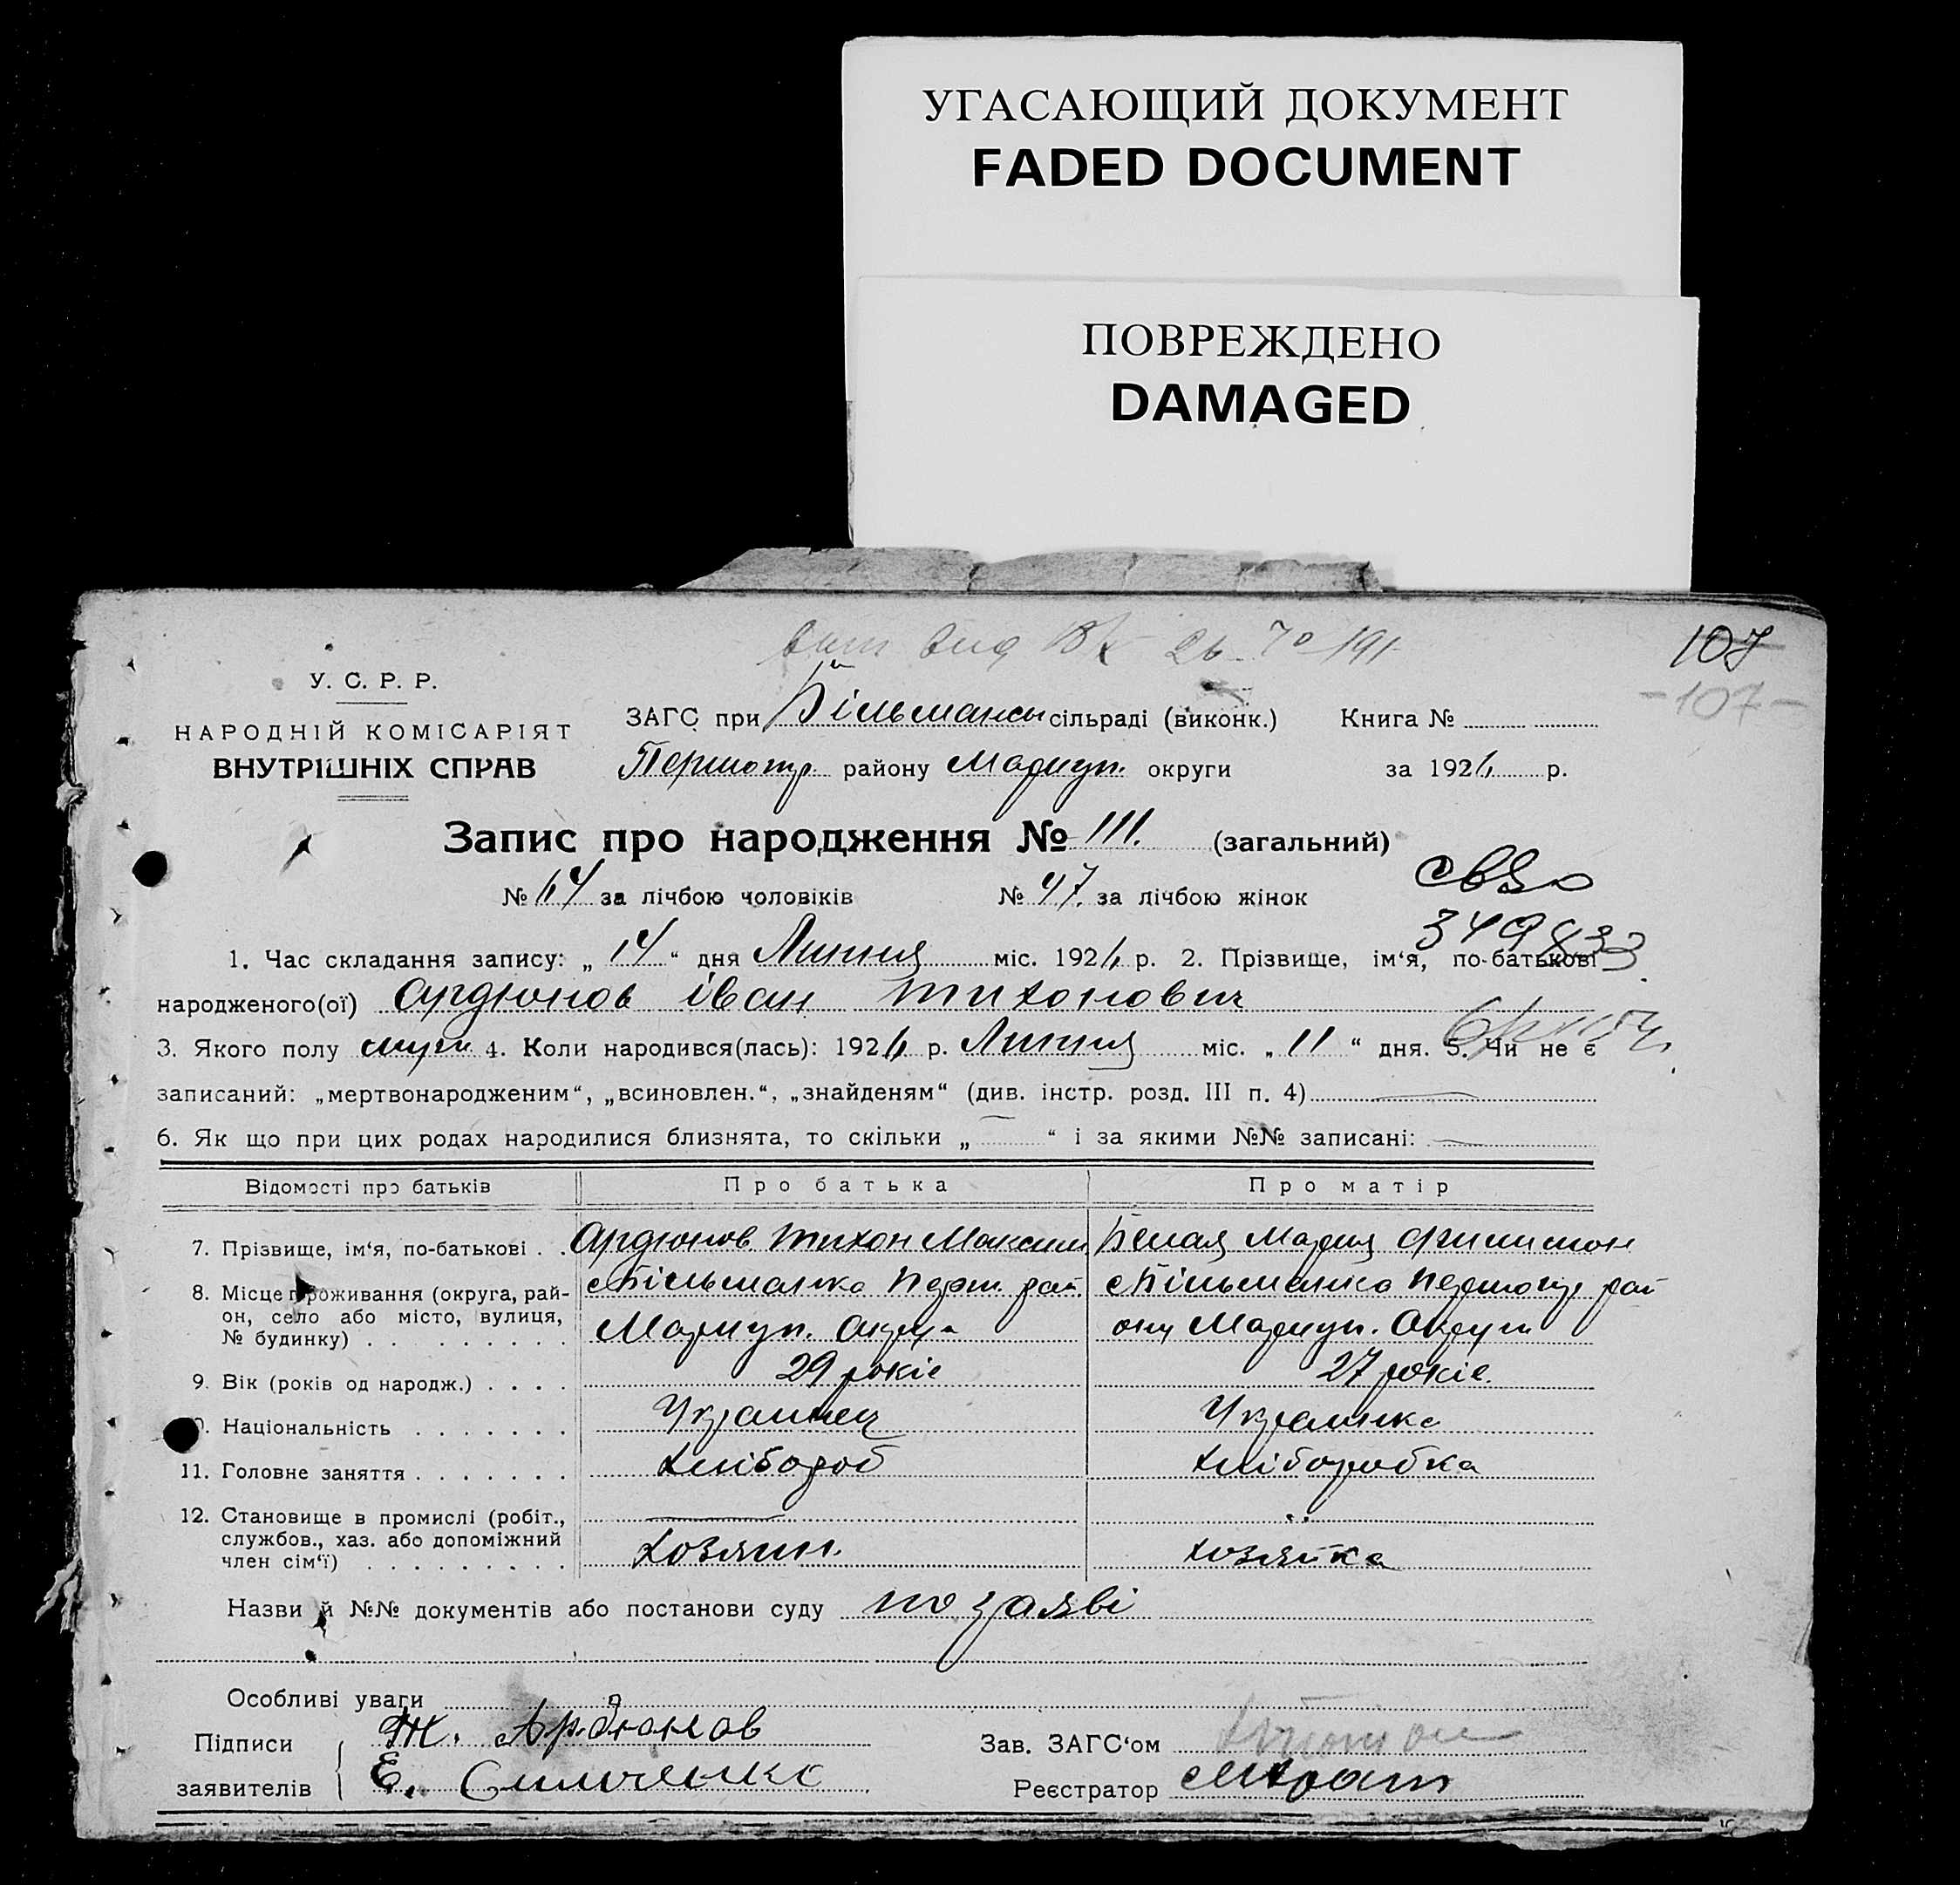 УГАСАЮЩИЙ ДОКУМЕНТ
FADED DOCUMENT
ПОВРЕЖДЕНО
DAMAGED
107
-107-
У. С. Р. Р.
НАРОДНІЙ КОМІСАРІЯТ
ВНУТРІШНІХ СПРАВ
ЗАГС при Більманськ сільраді (виконк.) Книга №
Першотр. району Мариуп. округи за 1926 р.
Запис про народження № 111. (загальний)
№ 64 за лічбою чоловіків № 47. за лічбою жінок
349833
1. Час складання запису: „ 14 “ дня Липня міс. 1926 р. 2. Прізвище, ім‘я, по-батькові
народженого(ої) Ардюнов іван тихонович
3. Якого полу 4. Коли народився(лась): 1926 р. Липня міс. „ 11 “ дня. 5. Чи не є
записаний: „мертвонародженим“, „всиновлен.“, „знайденям“ (див. інстр. розд. III п. 4)
6. Як що при цих родах народилися близнята, то скільки „ “ і за якими №№ записані:
Відомості про батьків Про батька Про матір
7. Прізвище, ім‘я, по-батькові . . Ардюнов тихон Максим Белая Мария Филимон
8. Місце проживання (округа, рай-он, село або місто, вулиця, № будинку) с Більманка Перш. рай. Мариуп. Округи с Більманка Першотр рай ону Мариуп. Округи
9. Вік (років од народж.) . . . . 29 років 27 років.
10. Національність . . . . . . . Украинец Украинка
11. Головне заняття . . . . . . . Хлібороб Хліборобка
12. Становище в промислі (робіт., службов., хаз. або допоміжний член сім‘ї) . . . . . . . . . Хозяин. хозяйка
Назви й №№ документів або постанови суду по заяві
Особливі уваги
Підписи Т. Ардюнов Зав. ЗАГС‘ом
заявителів Е. Реєстратор